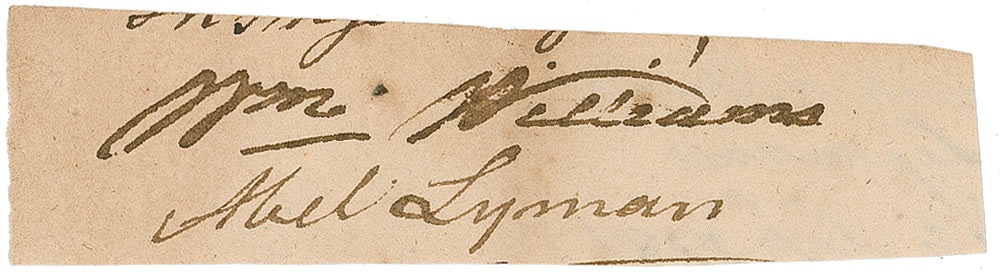 Wm Williams
Abel Lyman